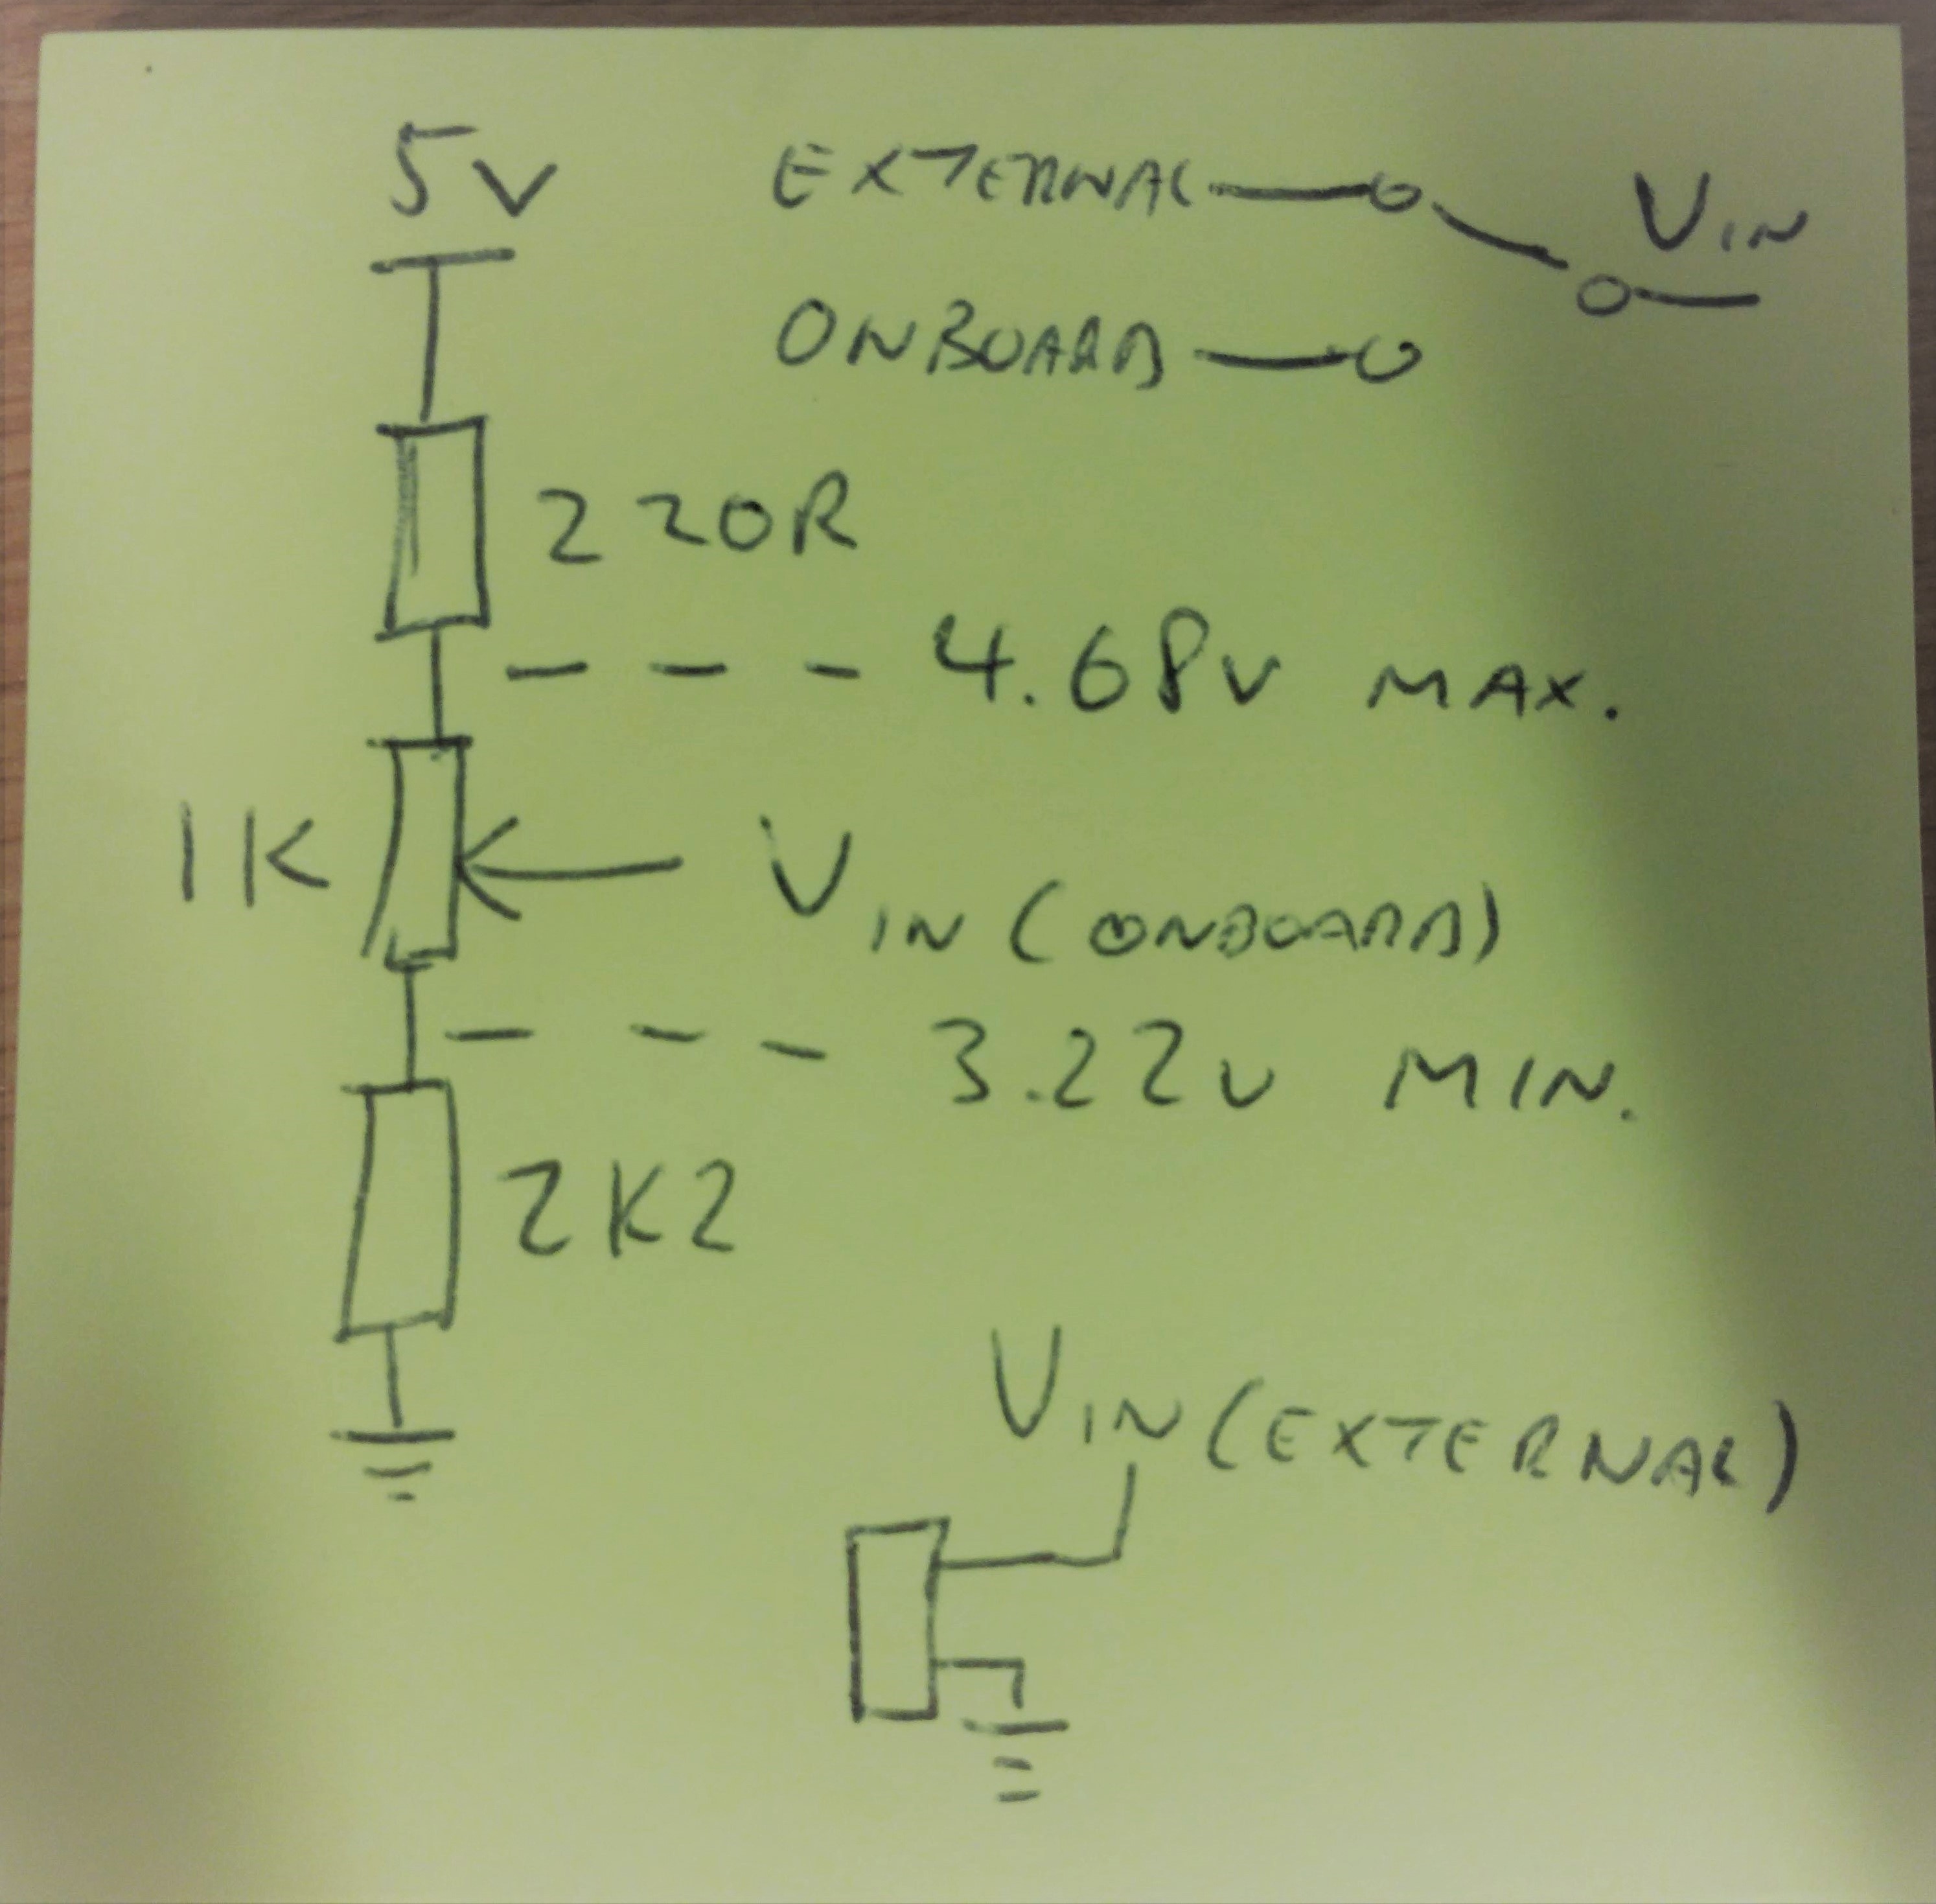 5V
EXTERNAL
VIN
ONBOARD
220R
4.68V MAX.
1K
VIN (ONBOARD)
3.22V MIN.
2K2
VIN (EXTERNAL)